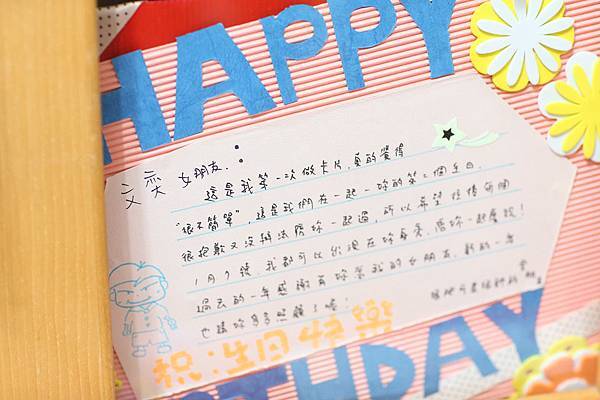 HAPPY
女朋友：
這是我第一次做卡片,真的覺得
"很不簡單",這是我們在一起,妳的第二個生日,
很抱歉又沒辦法陪妳一起過,所以希望往後每個
1月9號,我都可以出現在妳身旁,陪妳一起慶祝!
過去的一年感謝有妳當我的女朋友,新的一年
也請妳多多照顧了喔!
祝:生日快樂
BIRTHDAY